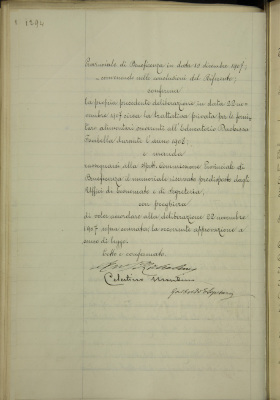 1294
Provinciale di Beneficenza in data 10 dicembre 1907;
convenendo nelle conclusioni del Rifondo;
conferma
la propria precedente deliberazione in data 22 no-
vembre 1907 circa la trattativa privata per le forni-
ture alimentari occorrenti all'Educatorio Duchessa
Isabella durante l'anno 1908;
e manda
comunicarsi alla Spett. Commissione Provinciale di
Beneficenza il memoriale riservato predisposto dagli
Uffici di Economato e di Segreteria,
con preghiera
di voler accordare alla deliberazione 22 novembre
1907 sopra cennata, la occorrente approvazione a
senso di legge.
Letto e confermato.
Celestino